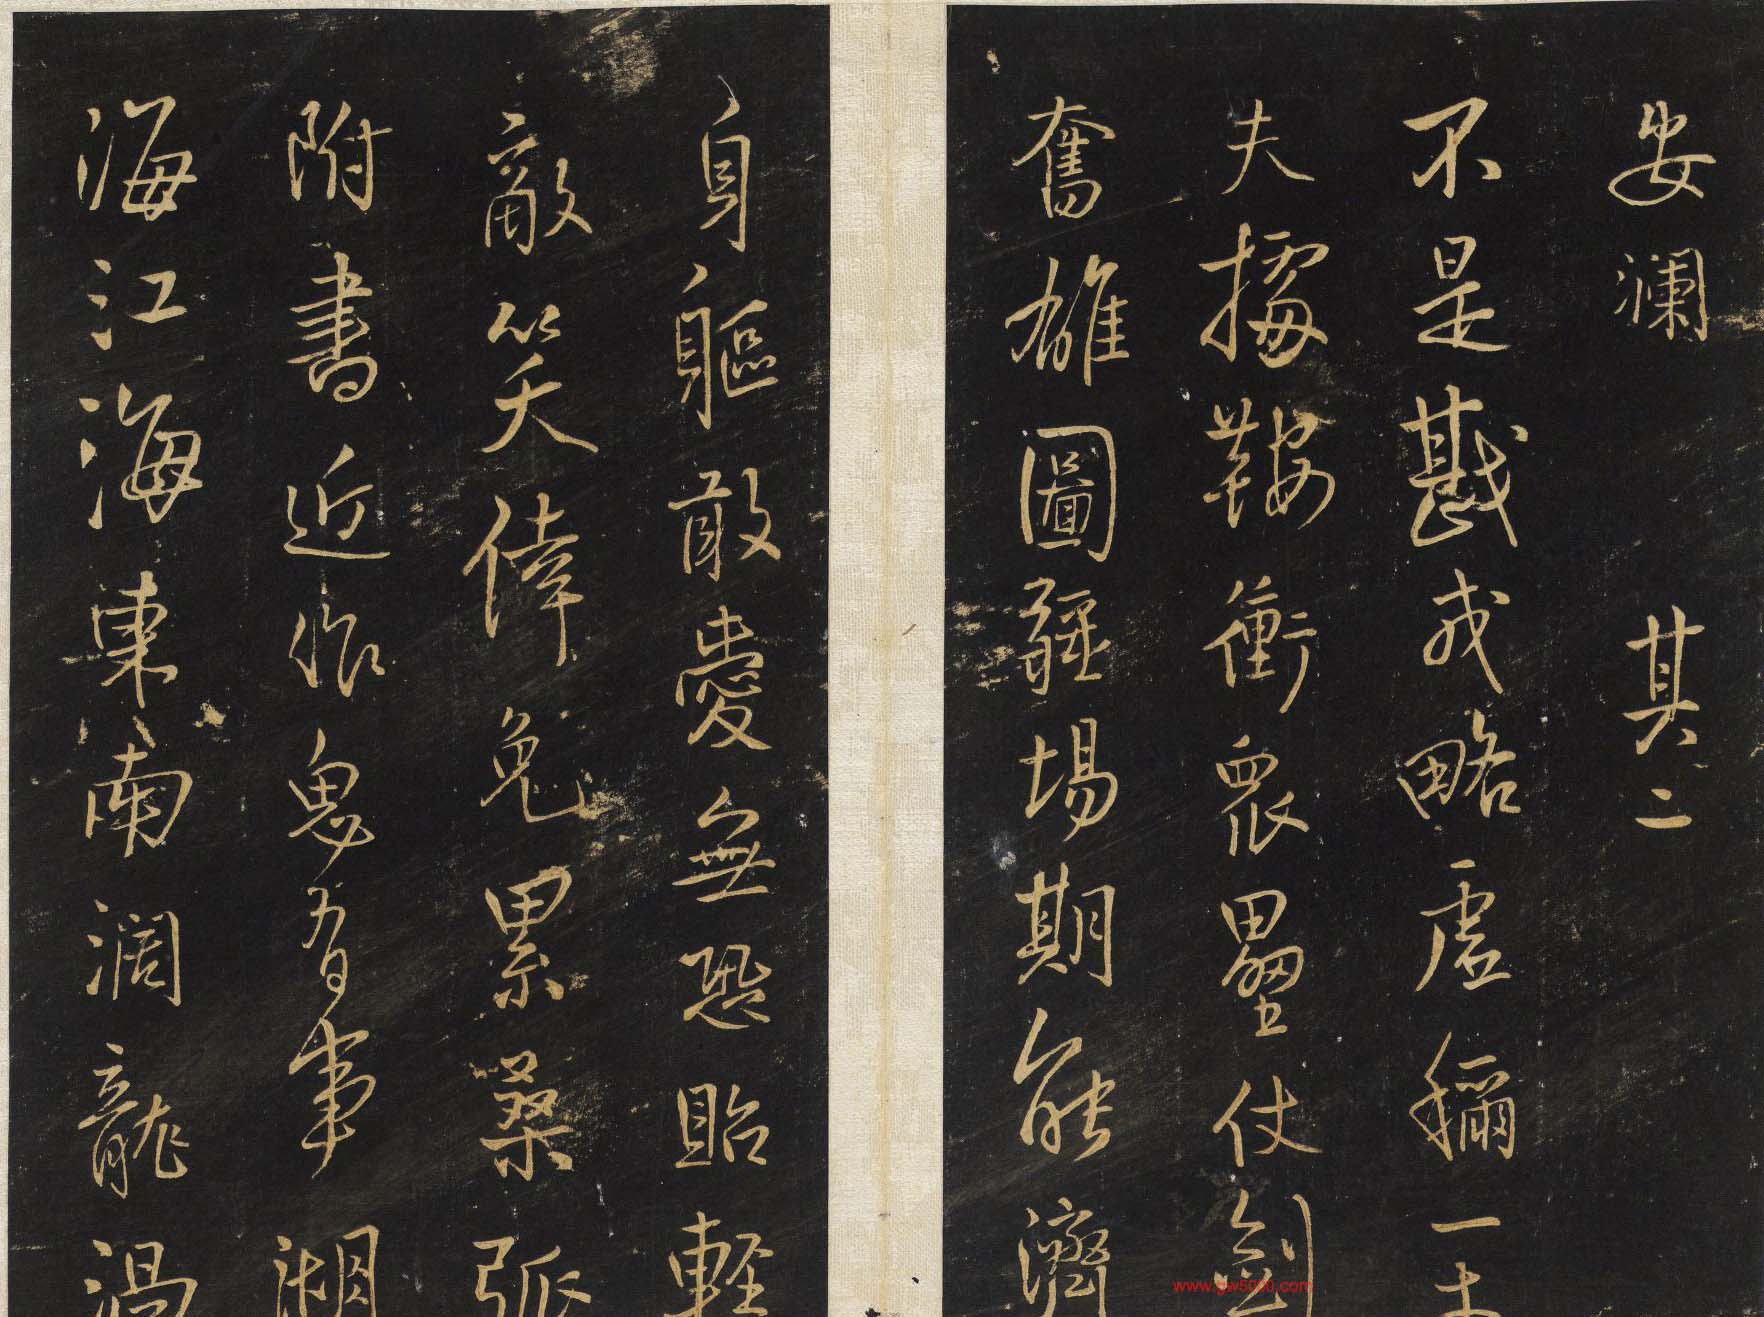 安瀾 其二
不是戡戎略虛稱一
夫據鞍衝眾壘仗劍
奮雄圖疆場期能濟
身軀敢愛無恐貽輕
敵笑倖免累桑弧
附書近作鬼方事 湖
海江海東南濶龍渦
www.gw5000.com